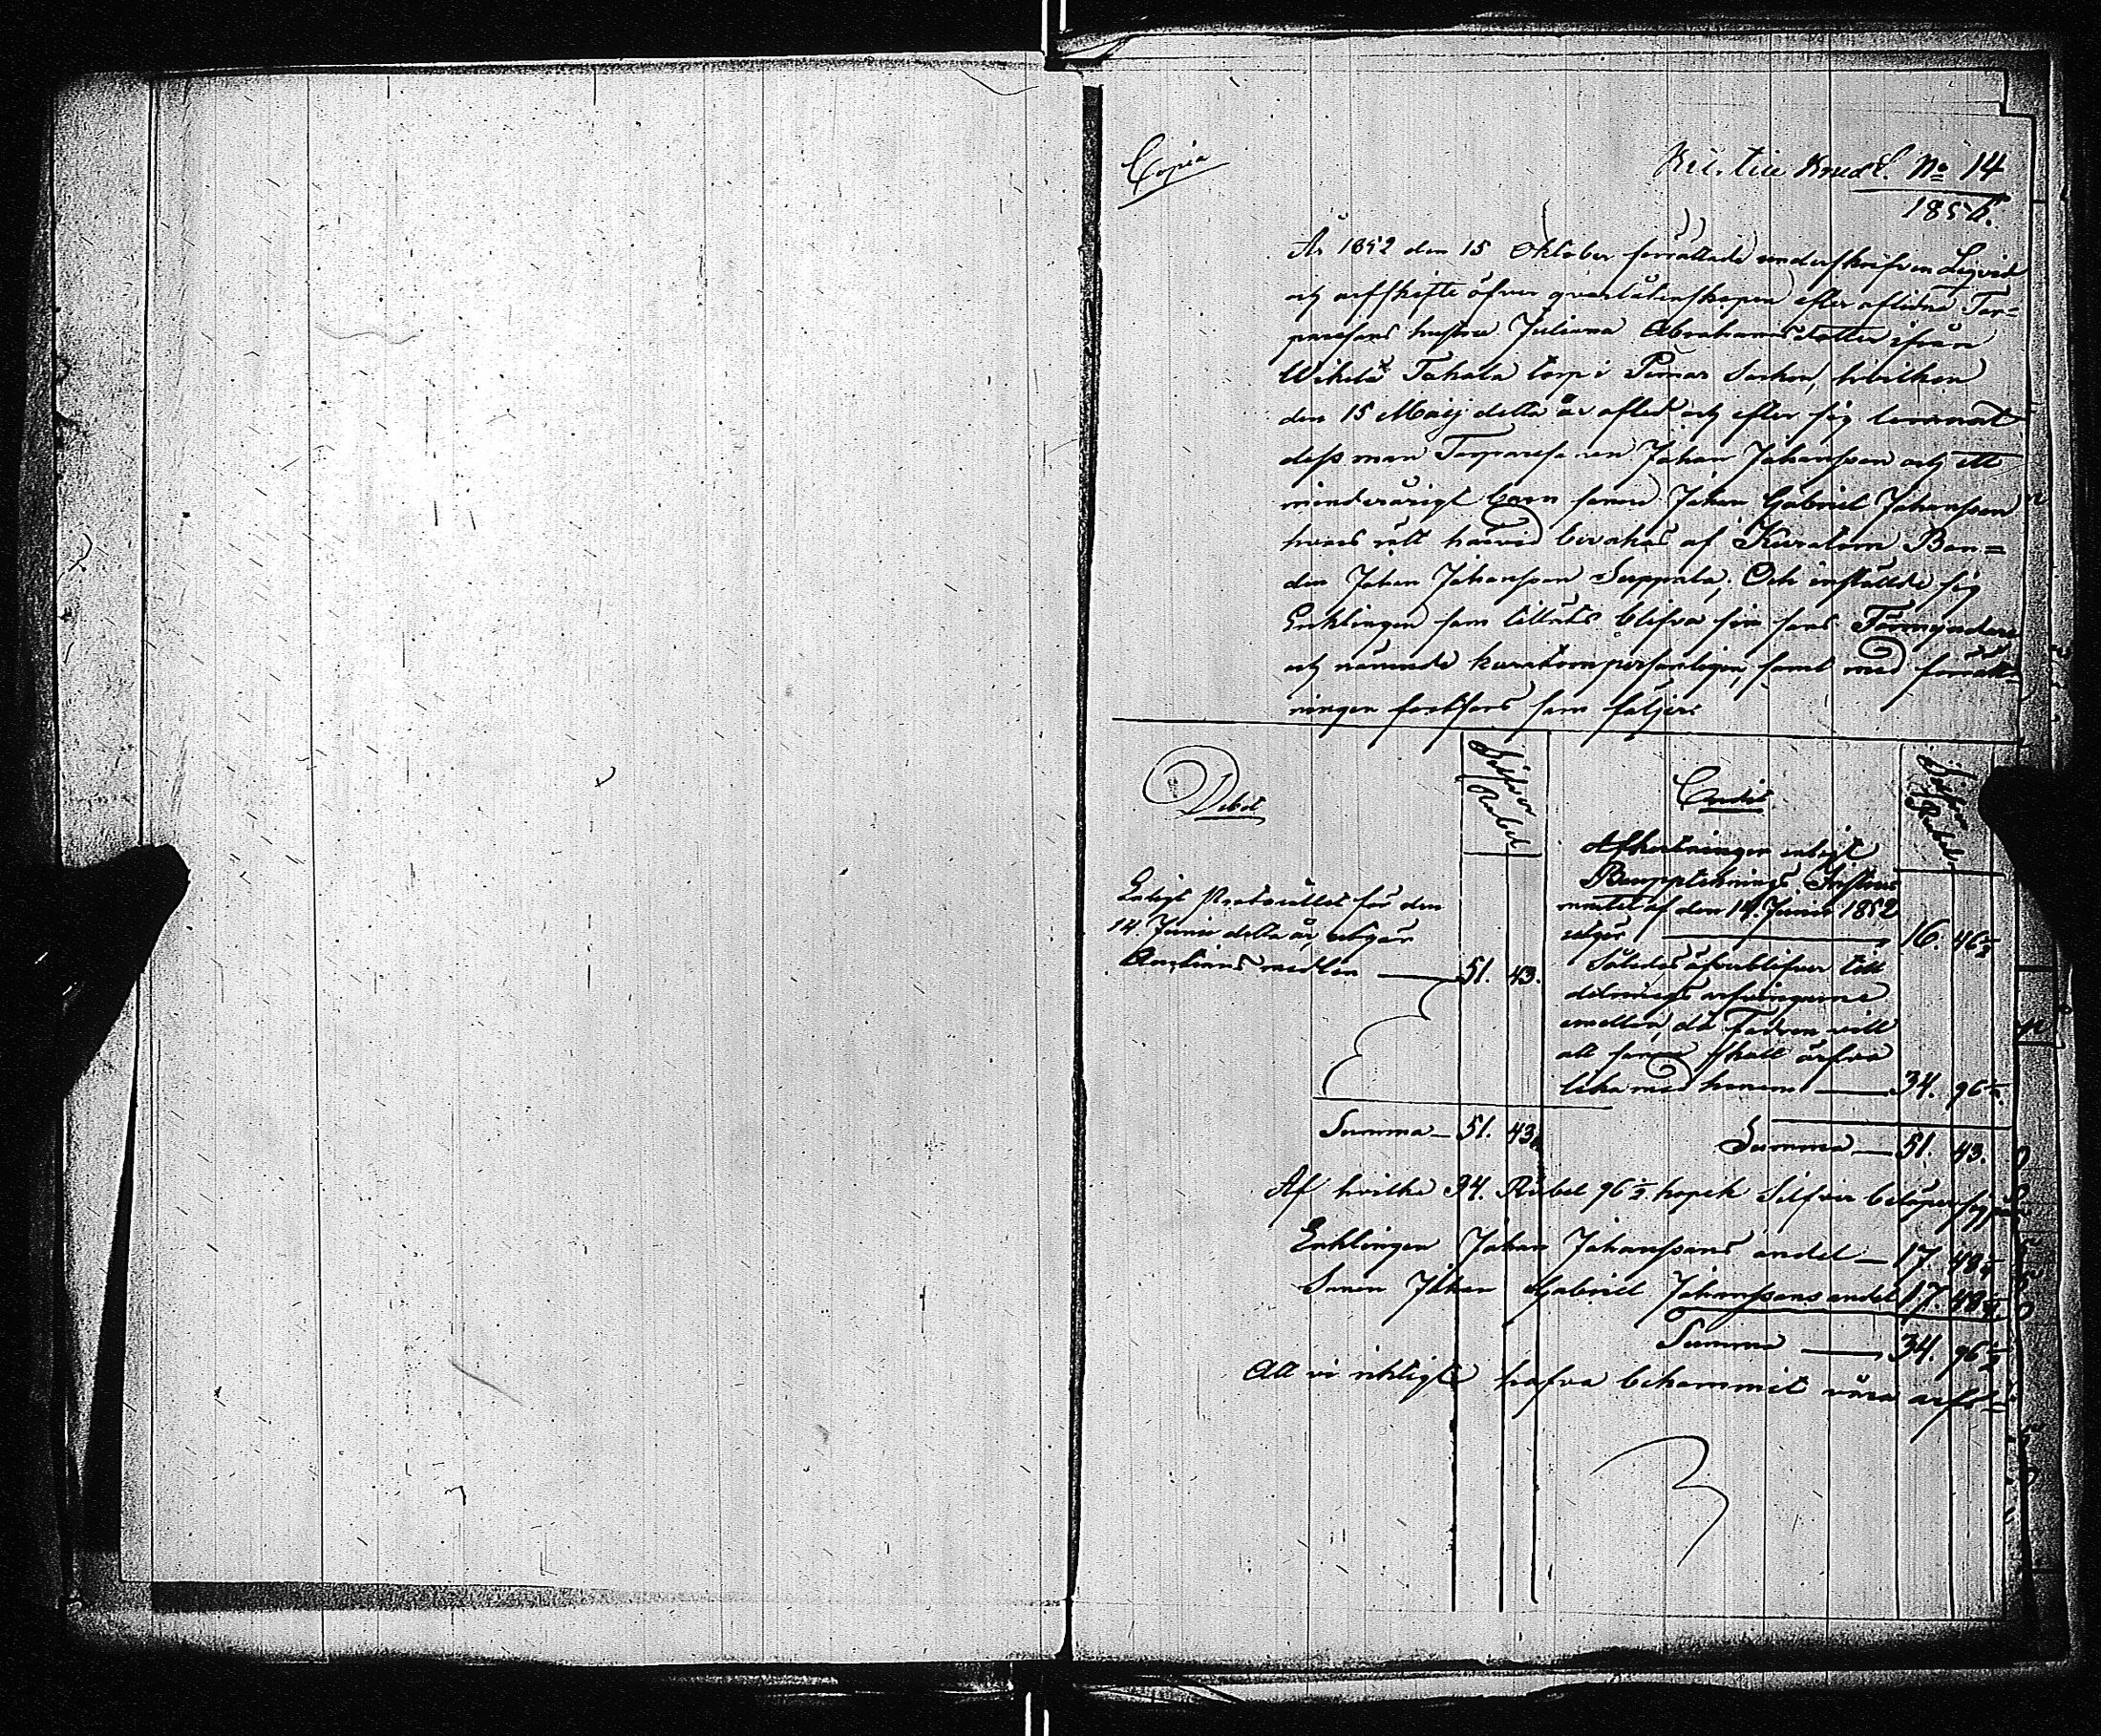 Copia
No 14
185
År 1852 den 15 Oktober förrättade underskrifven Leqvid
och arfskifte öfver qvarlåtenskapen efter aflidne Tor=
paresans hustru Juliana Abrahamsdotter ifrån
Tahala torp i Pemar Socken, hvilken
den 15 Maij detta år afled och efter sig lemnat
dess man Torparesonen Johan Johansson och ett
minderårigt barn sonen Johan Gabriel Johansson
hvars rätt härvid bevakas af Kuratorn Bon=
den Johan Johansson Seppala; Och inställde sig
Enklingen som tillåts blifva sin sons Förmyndare
och nämnde kuratorn personligen, samt med förrätt=
ningen fortfors som följer:
Debet
Silfver Rubel
Credit
Silfver Rubel
Enligt Protocollet för den
14. Junii detta år, utgör
Auctions medlen — 51. 43.
Afkortningen enligt
Beuppteknings Instru
mentet af den 14. Junii 1852
utgör — 16. 46½
Således öfverblifver till
delnings arfvingarne
emellan, då Fadren vill
att sonen skall ärfva
lika med honom — 34. 96½.
Summa — 51. 43.
Summa — 51. 43.
Af hvilka 34. Rubel 96½ kopek Silfver belöper sig på
Enklingen Johan Johanssons andel — 17. 48¼
Sonen Johan Gabriel Johanssons andel 17. 48¼
Summa — 34. 96½
Att vi riktigt hafva bekommit våra arfs=